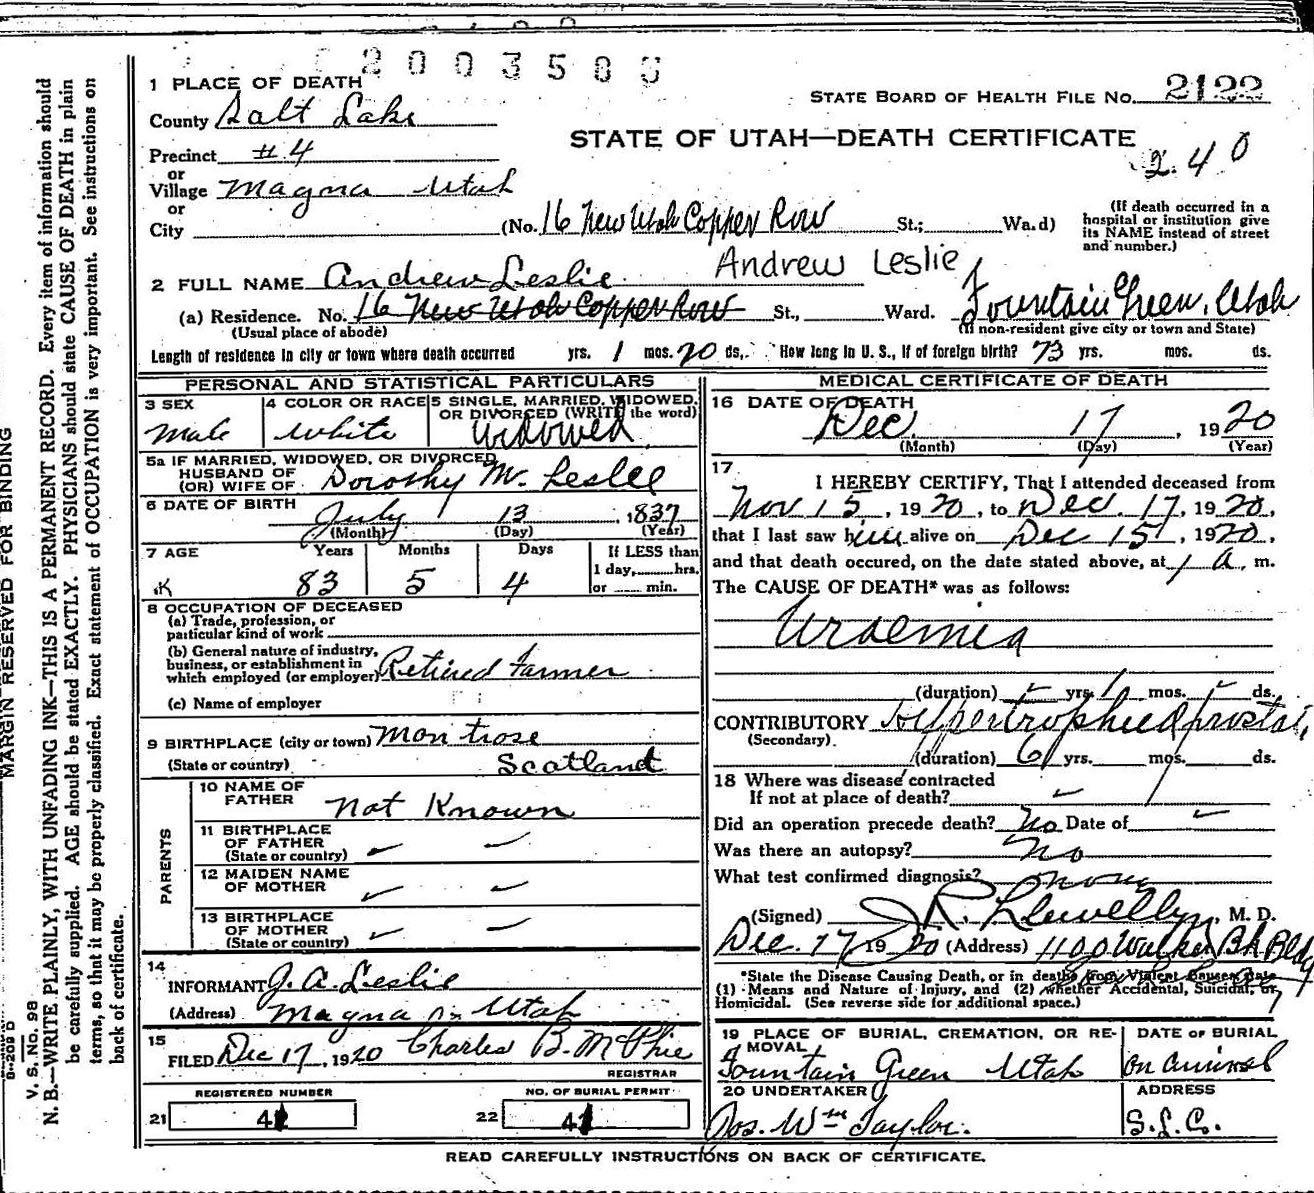 2003500
1 PLACE OF DEATH
STATE BOARD OF HEALTH FILE NO. 2122
County Salt Lake
STATE OF UTAH—DEATH CERTIFICATE
240
Precinct #4
or
Village Magna Utah
or
City
(No. 16 New Utah Copper Row St.; Ward)
(If death occurred in a
hospital or institution give
its NAME instead of street
and number.)
Andrew Leslie
2 FULL NAME Andrew Leslie
(a) Residence. No. 16 New Utah Copper Row St., Ward. Fountain Green, Utah
(Usual place of abode)
(If non-resident give city or town and State)
Length of residence in city or town where death occurred yrs. 1 mos. 20 ds. How long in U. S., if of foreign birth? 73 yrs. mos. ds.
PERSONAL AND STATISTICAL PARTICULARS
3 SEX
Male
4 COLOR OR RACE
White
5 SINGLE, MARRIED, WIDOWED,
OR DIVORCED (WRITE the word)
Widowed
5a IF MARRIED, WIDOWED, OR DIVORCED
HUSBAND OF
(OR) WIFE OF Dorothy M. Leslie
6 DATE OF BIRTH
July 13, 1837
(Month) (Day) (Year)
7 AGE Years Months Days If LESS than
1 day, hrs.
83 5 4 or min.
8 OCCUPATION OF DECEASED
(a) Trade, profession, or
particular kind of work
(b) General nature of industry,
business, or establishment in
which employed (or employer) Retired Farmer
(c) Name of employer
9 BIRTHPLACE (city or town) Montrose
(State or country) Scotland
PARENTS
10 NAME OF
FATHER Not Known
11 BIRTHPLACE
OF FATHER
(State or country)
12 MAIDEN NAME
OF MOTHER
13 BIRTHPLACE
OF MOTHER
(State or country)
14
INFORMANT J. A. Leslie
(Address) Magna Utah
15
FILED Dec 17, 1920 Charles B. McPhie
REGISTRAR
REGISTERED NUMBER
21 41
NO. OF BURIAL PERMIT
22 41
MEDICAL CERTIFICATE OF DEATH
16 DATE OF DEATH
Dec 17, 1920
(Month) (Day) (Year)
17
I HEREBY CERTIFY, That I attended deceased from
Nov 15, 1920, to Dec. 17, 1920,
that I last saw him alive on Dec 15, 1920,
and that death occured, on the date stated above, at 1 a. m.
The CAUSE OF DEATH* was as follows:
Uraemia
(duration) yrs. 1 mos. ds.
CONTRIBUTORY Hypertrophied prostate
(Secondary)
(duration) 6 yrs. mos. ds.
18 Where was disease contracted
If not at place of death?
Did an operation precede death? No Date of
Was there an autopsy? No
What test confirmed diagnosis?
(Signed) J R. Llewellyn, M. D.
Dec. 17 1920 (Address) 1100 Walker Bk Bldg
*State the Disease Causing Death, or in deaths from Violent Causes, state
(1) Means and Nature of Injury, and (2) whether Accidental, Suicidal, or
Homicidal. (See reverse side for additional space.)
19 PLACE OF BURIAL, CREMATION, OR RE-
MOVAL
Fountain Green Utah
DATE OF BURIAL
on arrival
20 UNDERTAKER
Jos. Wm Taylor.
ADDRESS
S.L.C.
READ CAREFULLY INSTRUCTIONS ON BACK OF CERTIFICATE.
MARGIN RESERVED FOR BINDING
V. S. No. 98
N. B.—WRITE PLAINLY, WITH UNFADING INK—THIS IS A PERMANENT RECORD. Every item of information should
be carefully supplied. AGE should be stated EXACTLY. PHYSICIANS should state CAUSE OF DEATH in plain
terms, so that it may be properly classified. Exact statement of OCCUPATION is very important. See instructions on
back of certificate.